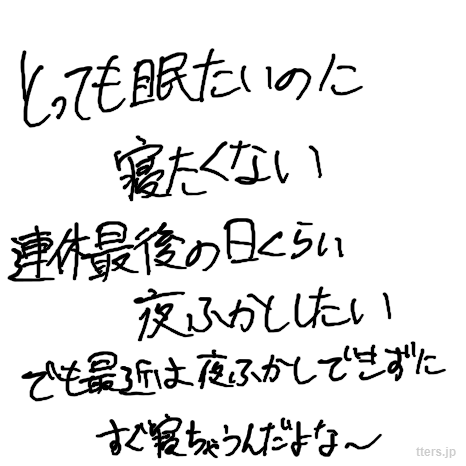 とっても眠たいのに
寝たくない
連休最後の日くらい
夜ふかとしたい
でも最近は夜ふかしできずに
すぐ寝ちゃうんだよな〜
tters.jp